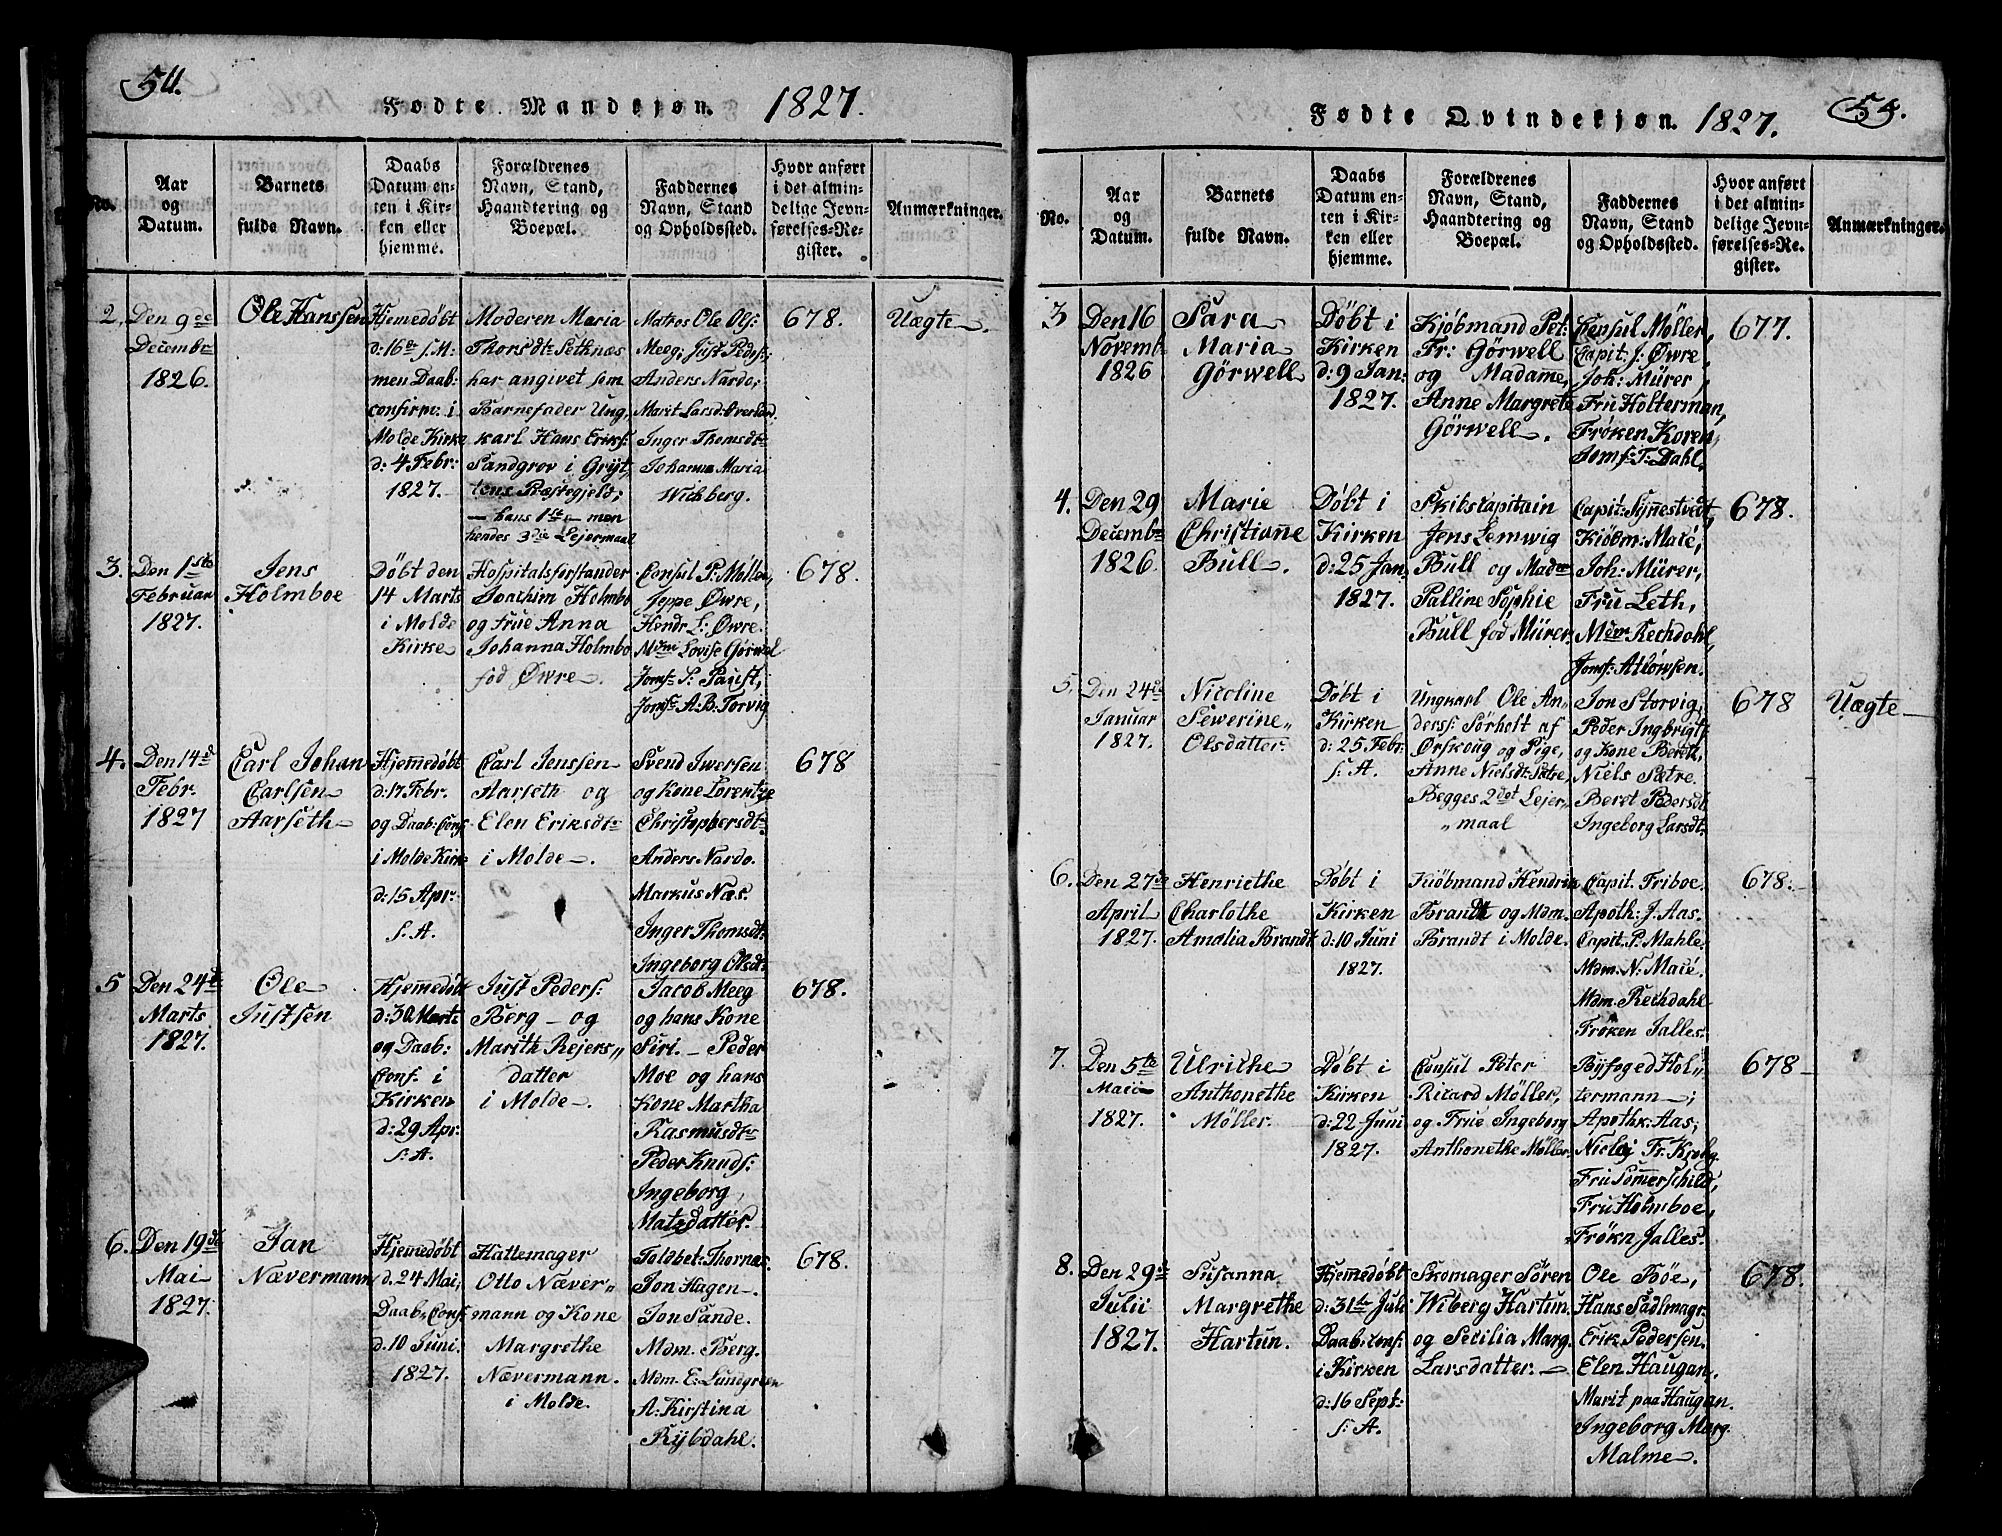 54.
Fødte Mandkjøn. 1827.
No.
Aar
og
Datum.
Barnets
fulde Navn.
Daabs
Datum en-
ten i Kir-
ken eller
hjemme.
Forældrenes
Navn, Stand,
Haandtering og
Boepæl.
Faddernes
Navn, Stand
og Opholdssted.
Hvor anført
i det almin-
delige Jevn-
førelses-Re-
gister.
Anmærkninger.
2.
Den 9de
Decembr
1826.
Ole Hanssen
Hjemedøbt
d: 16de s: M:
men Daab:
confirm: i
Molde Kirke
d: 4 Febr:
1827.
Moderen Maria
Thorsdtr Setknæs
har angivet som
Barnefader Ung,,
karl Hans Eriks:
Sandgrov i Gryt,,
tens Præstegjeld;
— hans 1ste — men
hendes 3die Lejermaal
Matros Ole Ols:
Meeg, Just Peders:
Anders Nardo,
Marit Larsd: Øverland.
Inger Thomsdtr
Johanna Maria
Wichberg.
678.
Uægte.
3.
Den 1ste
Februar
1827.
Jens
Holmboe
Døbt den
14 Marts
i Molde
Kirke
Hospitalsforstander
Joachim Holmbo
og frue Anna
Johanna Holmbo
fød Øwre.
Consul P: Møller,
Jeppe Øwre,
Hendr L: Øwre.
Mdm Lovise Gørwel
Jomf: S: Paust,
Jomf: A: B: Torvig
678.
4.
Den 14de
Febr.
1827
Carl Johan
Carlsen
Aarseth
Hjemedøbt
d: 17 Febr.
og Daab: Conf
i Molde Kirke
d: 15 Apr:
s: A.
Carl Jenssen
Aarseth og
Elen Eriksdtr
i Molde.
Svend Iwersen
og Kone Lorentze
Christophersdtr
Anders Nardo.
Markus Næs.
Inger Thomsdtr
Ingeborg Olsdtr
678
5
Den 24de
Marts
1827.
Ole
Justsen
Hjemedøbt
d: 30 Marts
og Daab:
Conf. i
Kirken
d: 29 Apr:
s: A.
Just Peders:
Berg — og
Marith Rejers,,
datter
i Molde.
Jacob Meeg
og hans Kone
Siri. — Peder
Moe og hans
Kone Martha
Rasmusdtr
Peder Knuds:
Ingeborg
Matzdatter.
678.
6.
Den 19de
Mai
1827.
Jan
Nævermann
Hjemedøbt
d. 24 Mai,
Daab: Conf:
d: 10 Juni.
1827.
Hattemager
Otto Næver,,
mann og Kone
Margrethe
Nævermann.
i Molde.
Toldbet: Thornæs.
Jon Hagen.
Jon Sande.
Mdm. Berg.
Mdm. E: Lundgreen
A: Kirstina
Rybdahl.
678.
Fødte Qvindekjøn. 1827.
55.
No.
Aar
og
Datum.
Barnets
fulde Navn.
Daabs
Datum en-
ten i Kir-
ken eller
hjemme.
Forældrenes
Navn, Stand,
Haandtering og
Boepæl.
Faddernes
Navn, Stand
og Opholdssted.
Hvor anført
i det almin-
delige Jevn-
førelses-Re-
gister.
Anmærkninger.
3
Den 16
Novemb
1826
Sara
Maria
Gørwell
Døbt i
Kirken
d: 9 Jan:
1827.
Kjøbmand Pet:
Fr: Gørwell
og Madame,
Anne Margrete
Gørwell.
Consul Møller,
Capit: J: Øwre,
Joh: Mürer,
Fru Holterman,
Frøken Koren,
Jomf: T: Dahl,
677.
4.
Den 29
Decembr
1826.
Marie
Christianne
Bull.
Døbt i
Kirken
d: 25 Jan,
1827.
Skibscapitain
Jens Lemwig
Bull og Madme
Palline Sophie
Bull fød Mürer
Capit: Synnestvedt,
Kiøbm: Macé,
Joh: Mürer,
Fru Leth,
Mdm Rechdahl,
678.
5.
Den 24de
Januar
1827.
Nicoline
Sewerine,,
Olsdatter.
Døbt i
Kirken
d: 25 Febr.
s: A.
Ungkarl Ole An,,
ders: Sørholt af
Ørskoug og Pige,
Anne Nielsdtr Sætre,
Begges 2det Lejer,,
,,maal
Jon Storvig,
Peder Ingbrigt
og Kone Bereth,
Niels Sætre.
Beret Pedersdt
Ingeborg Larsdt:
678
Uægte
6.
Den 27de
April
1827.
Henriethe
Charlothe
Amalia Brandt
Døbt i
Kirken
d: 10 Juni
1827.
Kiøbmand Hendrik
Brandt og Mdm.
Brandt i Molde.
Capit. Friboe.
Apoth: J. Aas.
Capit. P. Mahle.
Mdm. N: Macé.
Mdm. Rechdahl
Frøken Jalles:
678.
7.
Den 5te
Maii
1827.
Ulriche
Anthonethe
Møller.
Døbt i
Kirken
d: 22 Juni
1827.
Consul Peter
Ricard Møller,
og Frue Ingeborg
Anthonethe Møller.
Byfoged Hol,,
termann;
Apothk: Aas;
Nicley Fr. Krohg.
Fru Somerschild,
Fru Holmboe,
Frøkn Jalles.
678
8.
Den 29de
Julii
1827.
Susanna
Margrethe
Hartun.
Hjemedøbt
d: 31te Juli
Daab: conf:
i Kirken
d: 16 Sept:
s: A.
Skomager Søren
Wiberg Hartun.
og Secilia Marg.
Larsdatter.
Ole Bøe,
Hans Sadlmagr.
Erik Pedersen.
Elen Haugan,
Marit paa Haugan.
Ingeborg Marg.
Malme.
678.